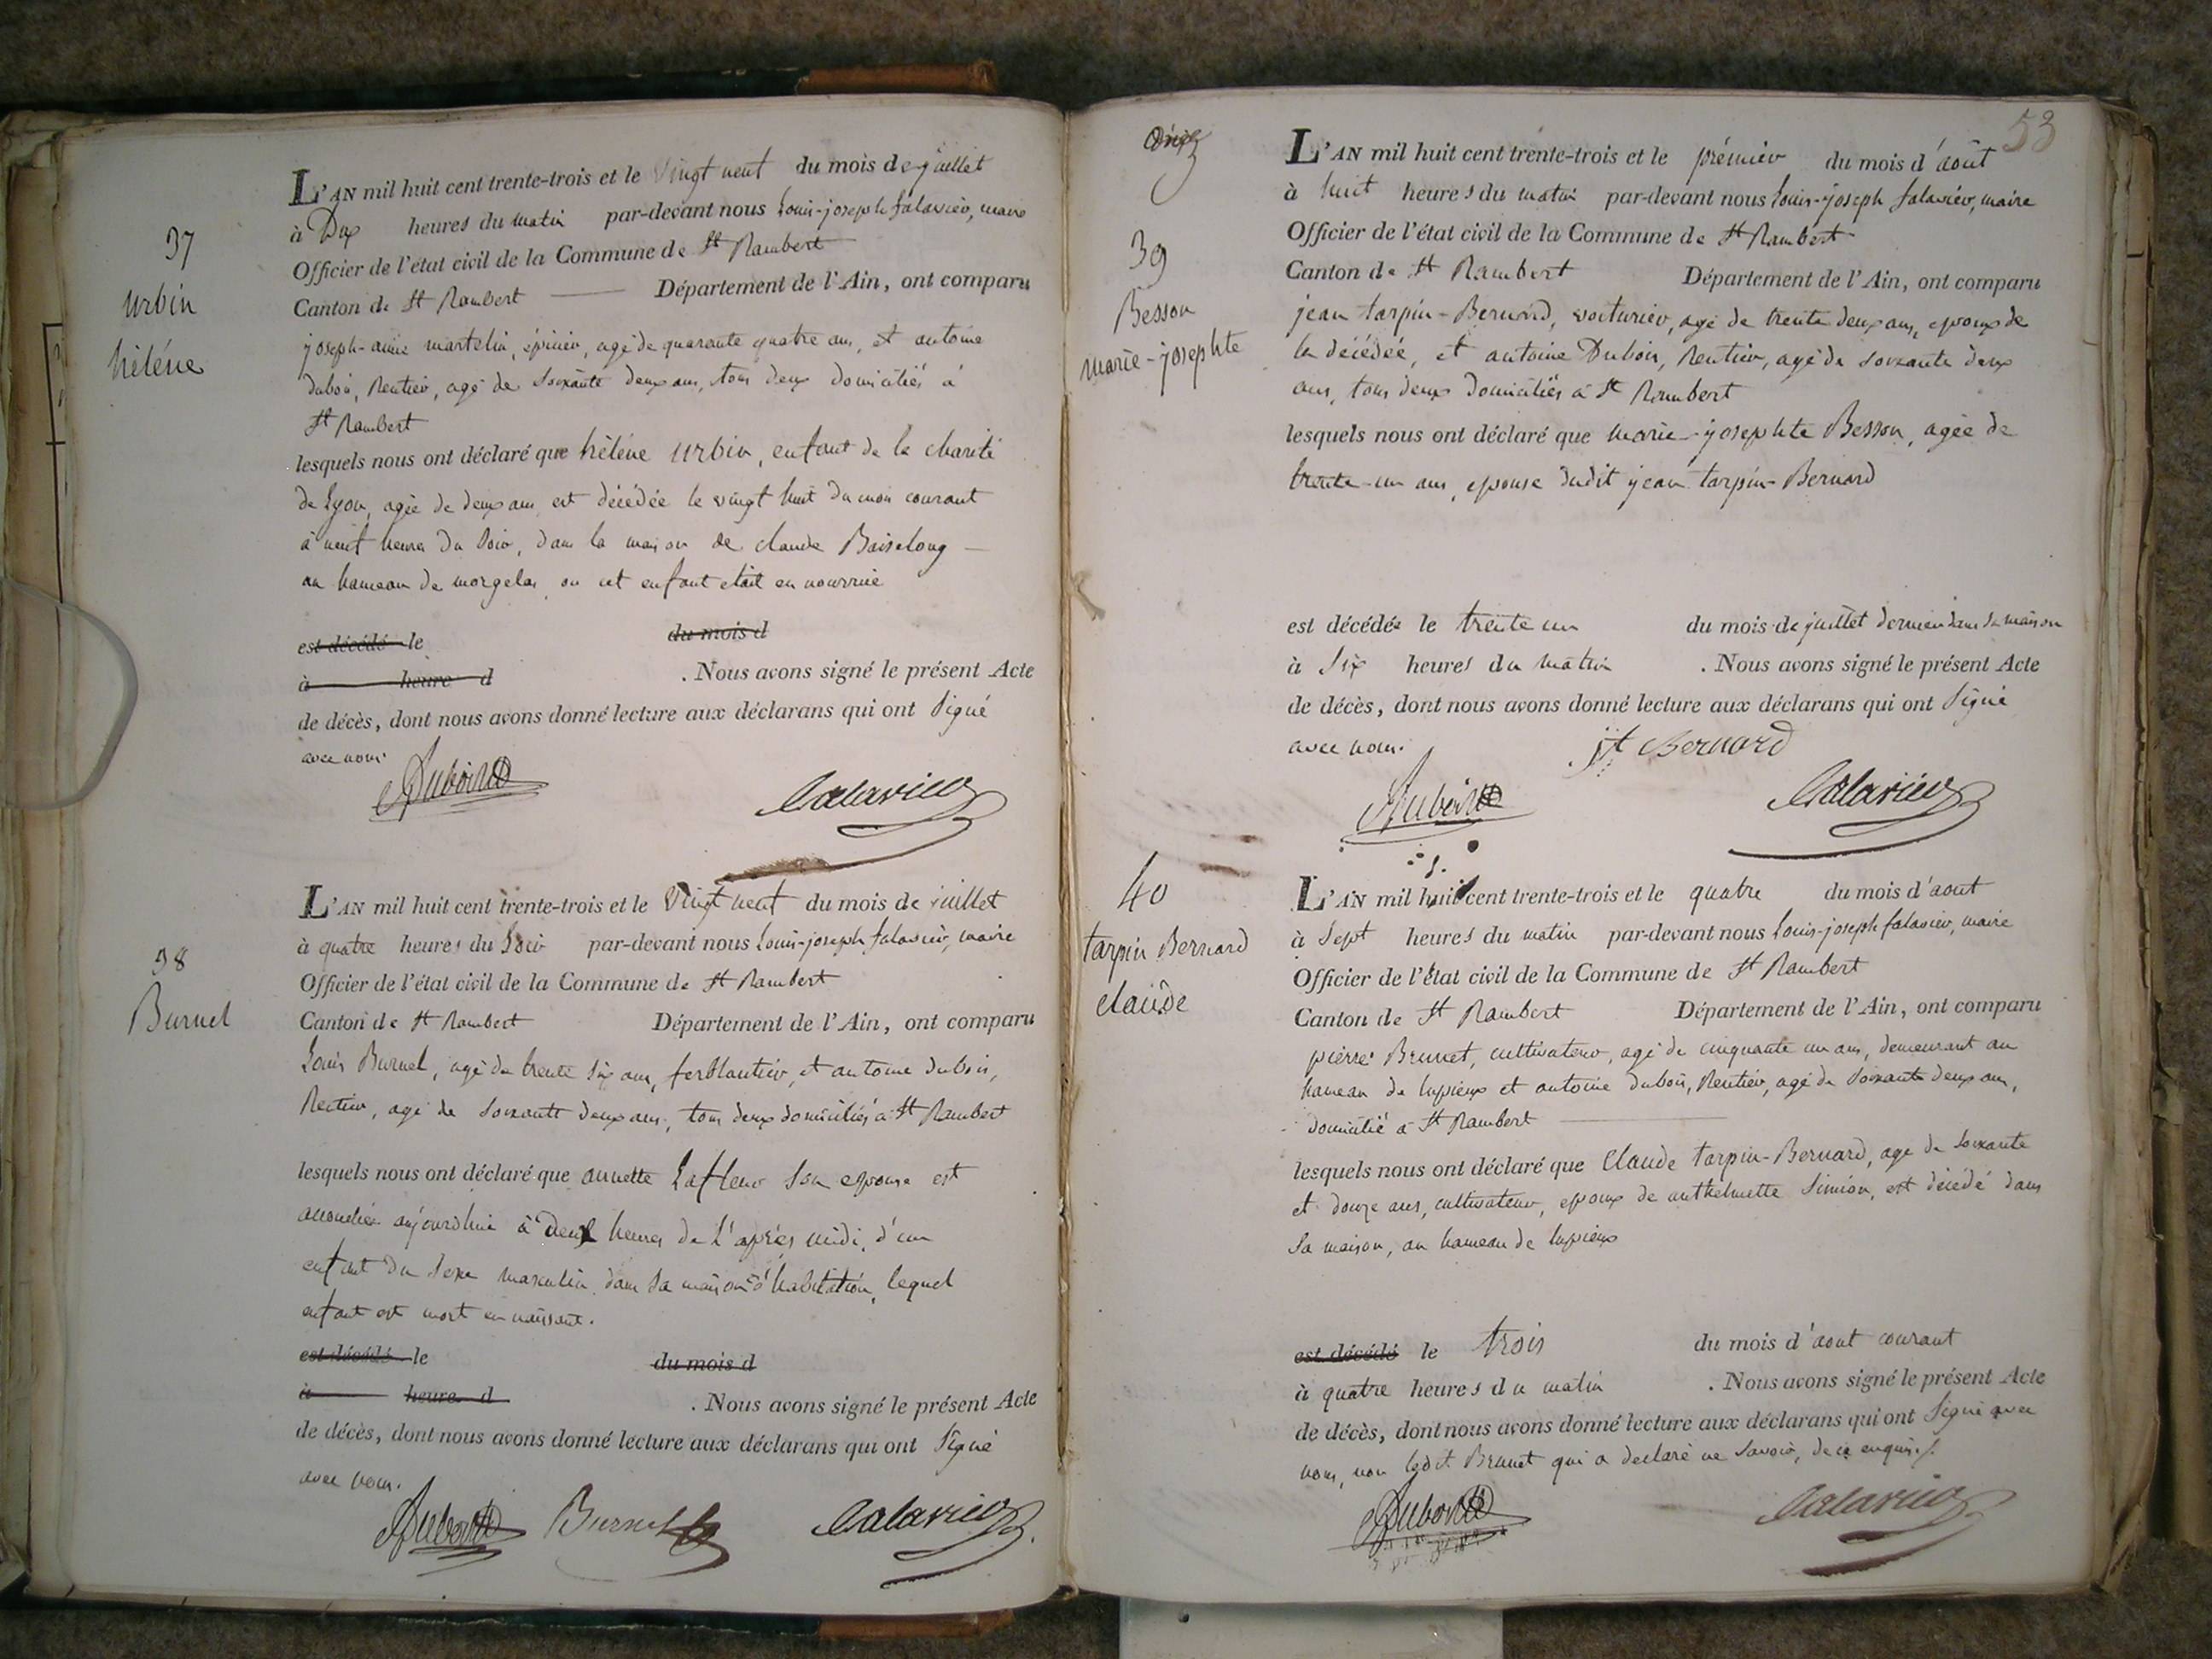 37
urbin
héléne
L'AN mil huit cent trente-trois et le vingt neuf du mois de juillet
à Dix heures du matin par-devant nous Louis-joseph falavier, maire
Officier de l'état civil de la Commune de St Rambert
Canton de St Rambert Département de l'Ain, ont comparu
joseph-aimé martelin, épicier, agé de quarante quatre ans, et antoine
dubois, Rentier, agé de soixante deux ans, tous deux domiciliés à
St Rambert
lesquels nous ont déclaré que héléne urbin, enfant de la charité
de Lyon, agée de deux ans, est décédée le vingt huit du mois courant
à neuf heures du soir, dans la maison de claude
au hameau de morgelas, ou cet enfant etait en nourrice
est décédé le du mois d
à heure d . Nous avons signé le présent Acte
de décès, dont nous avons donné lecture aux déclarans qui ont signé
avec nous.
Dubois
falavier
38
Burnel
L'AN mil huit cent trente-trois et le vingt neuf du mois de juillet
à quatre heures du soir par-devant nous Louis-joseph falavier, maire
Officier de l'état civil de la Commune de St Rambert
Canton de St Rambert Département de l'Ain, ont comparu
Louis Burnel, agé de trente six ans, ferblantier, et antoine dubois,
Rentier, agé de soixante deux ans, tous deux domiciliés à St Rambert
lesquels nous ont déclaré que annette Lafleur son epouse est
accouchée aujourdhui à deux heures de l'après midi, d'un
enfant du sexe masculin dans sa maison d'habitation, lequel
enfant est mort en naissant.
est décédé le du mois d
à heure d . Nous avons signé le présent Acte
de décès, dont nous avons donné lecture aux déclarans qui ont signé
avec nous.
Dubois Burnel falavier
53
39
Besson
marie-josephte
L'AN mil huit cent trente-trois et le prémier du mois d'août
à huit heures du matin par-devant nous Louis-joseph falavier, maire
Officier de l'état civil de la Commune de St Rambert
Canton de St Rambert Département de l'Ain, ont comparu
jean tarpin-Bernard, voiturier, agé de trente deux ans, epoux de
la décédée, et antoine Dubois, Rentier, agé de soixante deux
ans, tous deux domiciliés à St Rambert
lesquels nous ont déclaré que marie-josephte Besson, agée de
trente-un ans, epouse dudit jean tarpin-Bernard
est décédée le trente un du mois de juillet dernier dans sa maison
à six heures du matin . Nous avons signé le présent Acte
de décès, dont nous avons donné lecture aux déclarans qui ont signé
avec nous. jt Bernard
Dubois falavier
40
tarpin Bernard
claude
L'AN mil huit cent trente-trois et le quatre du mois d'aout
à sept heures du matin par-devant nous Louis-joseph falavier, maire
Officier de l'état civil de la Commune de St Rambert
Canton de St Rambert Département de l'Ain, ont comparu
pierre Brunet, cultivateur, agé de cinquante un ans, demeurant au
hameau de lupieux et antoine dubois, Rentier, agé de soixante deux ans,
domicilié à St Rambert
lesquels nous ont déclaré que Claude tarpin-Bernard, agé de soixante
et douze ans, cultivateur, epoux de anthelmette Simion, est décédé dans
sa maison, au hameau de lupieux
est décédé le trois du mois d'aout courant
à quatre heures du matin . Nous avons signé le présent Acte
de décès, dont nous avons donné lecture aux déclarans qui ont signé avec
nous, non ledit Brunet qui a declaré ne savoir, de ce enquis
Dubois falavier